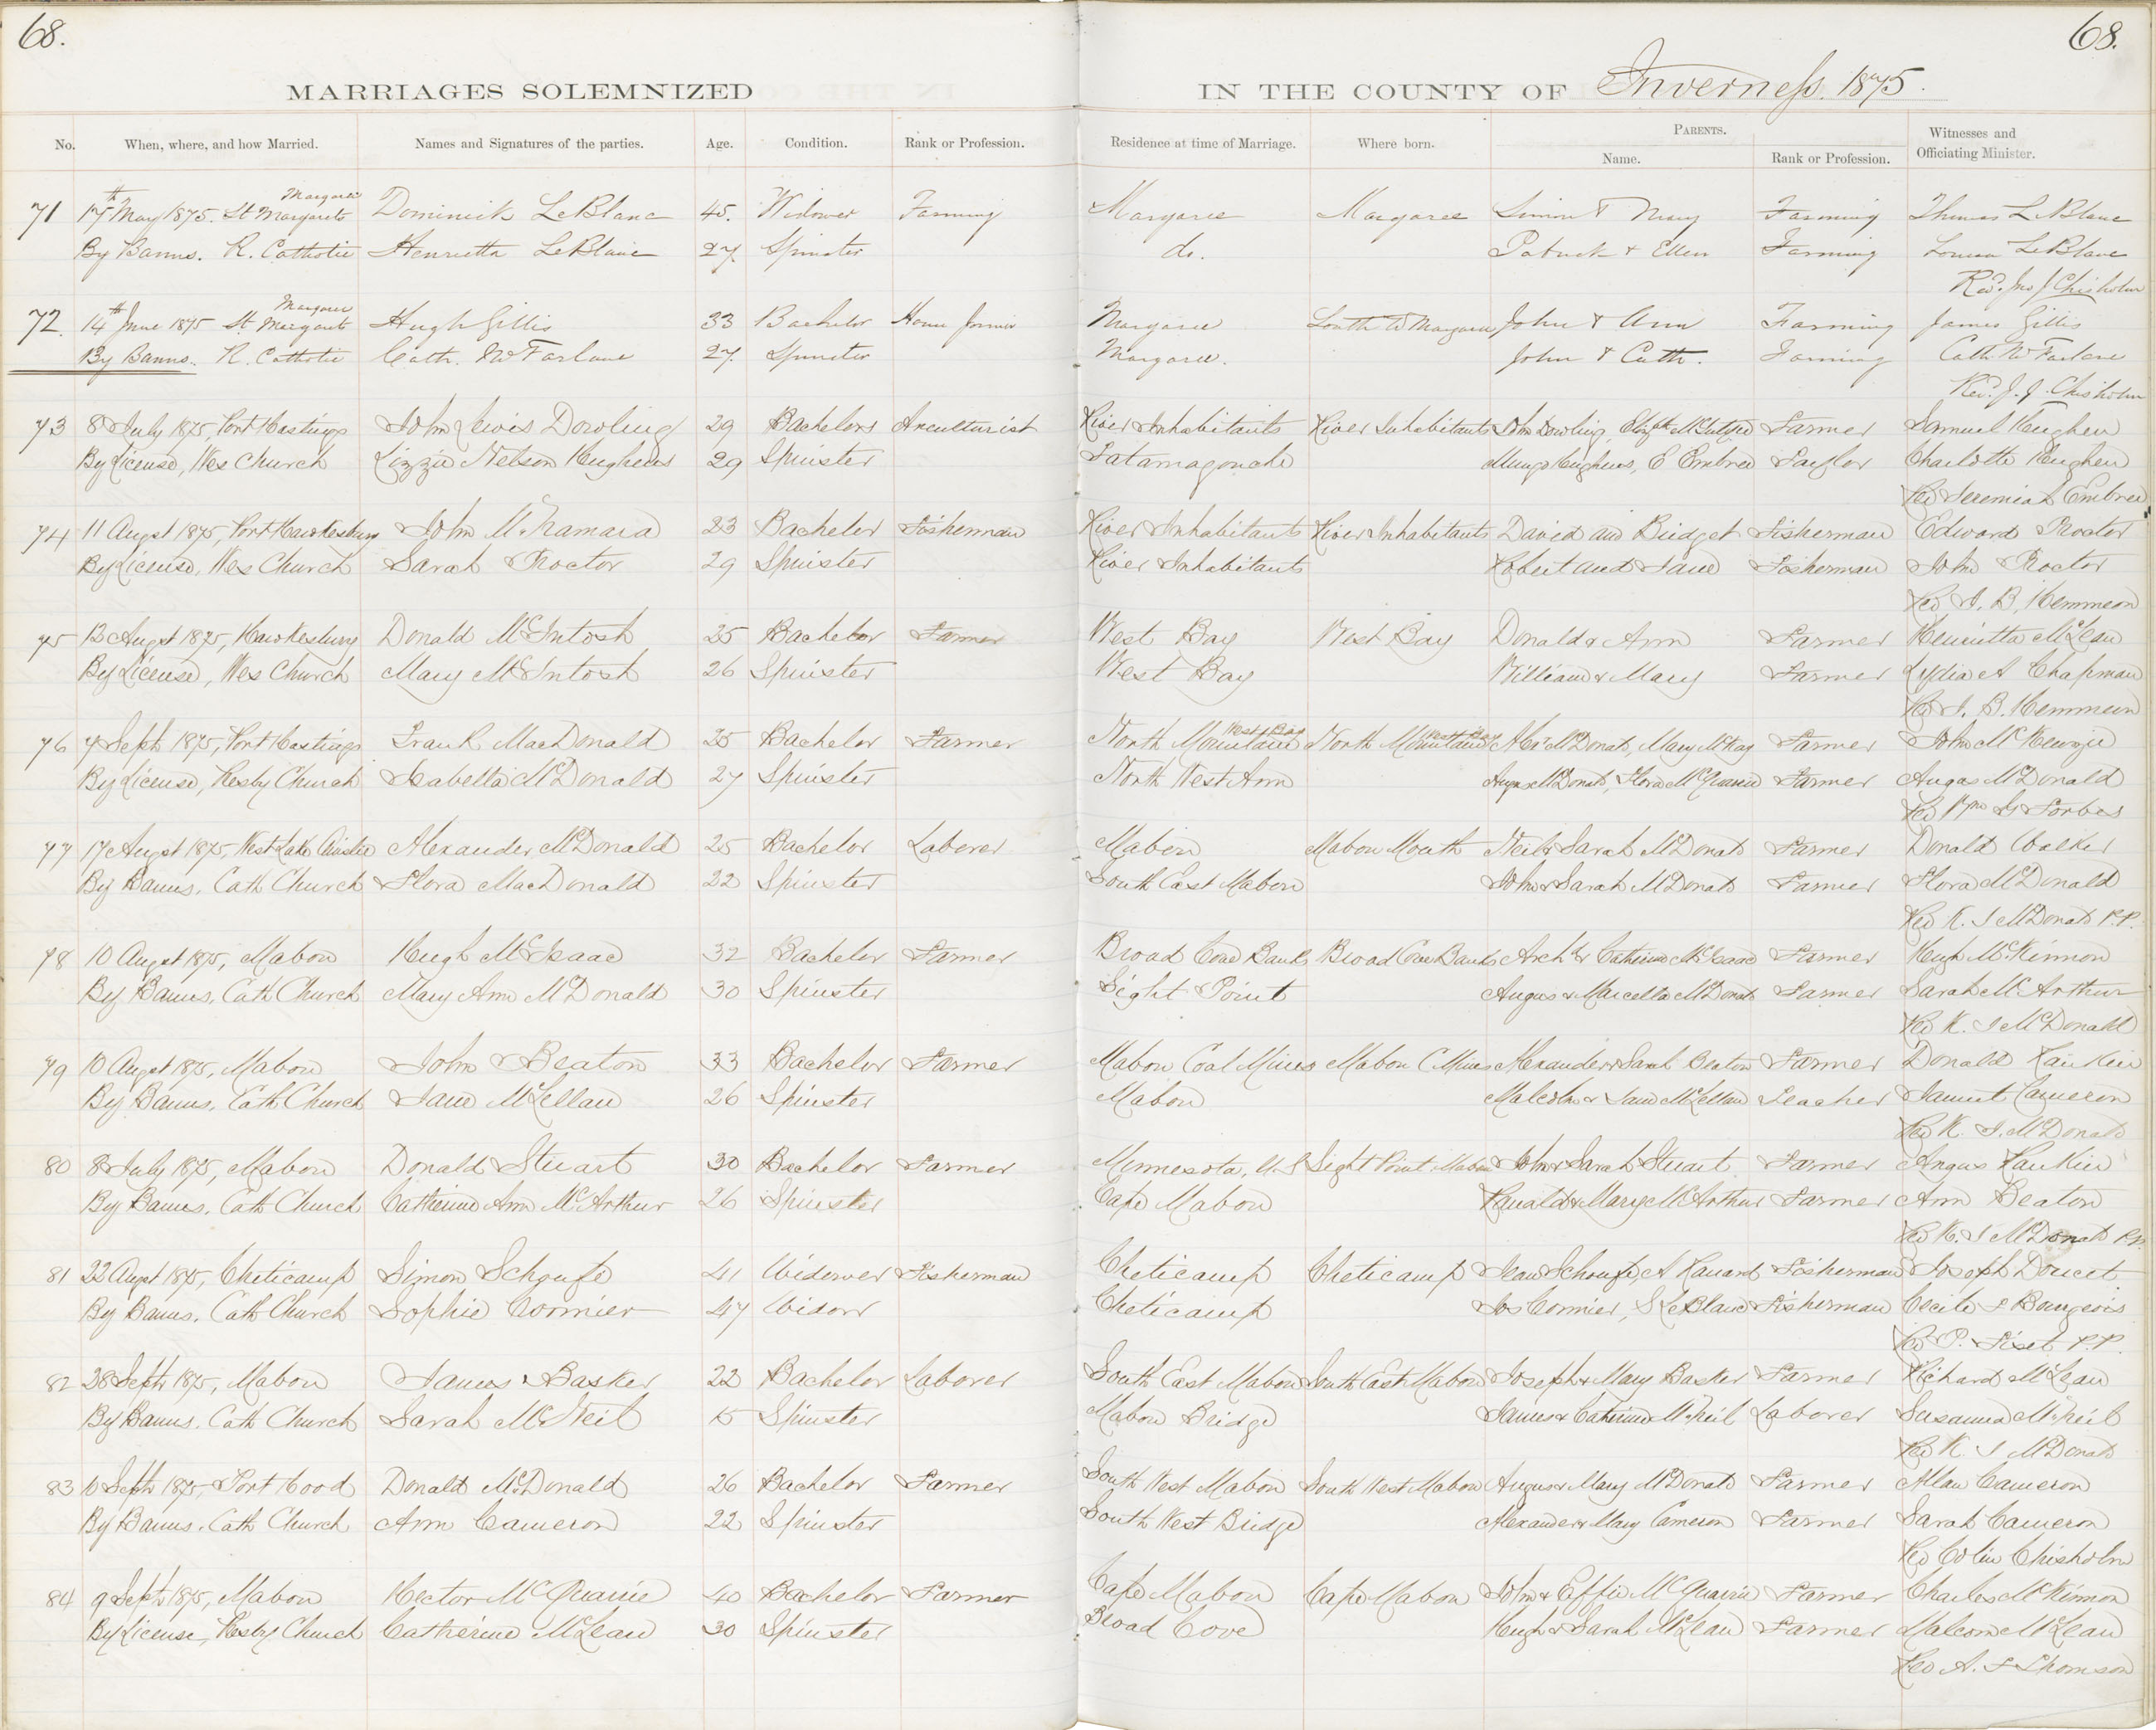 68. 68.
MARRIAGES SOLEMNIZED IN THE COUNTY OF Inverness. 1875.
No. When, where, and how Married. Names and Signatures of the parties. Age. Condition. Rank or Profession. Residence at time of Marriage. Where born. PARENTS. Name. Rank or Profession. Witnesses and Officiating Minister.
Margaree
71 17th May 1875. St Margarets Dominick LeBlanc 45. Widower Farming Margaree Margaree Simon & Mary Farming Thomas LeBlanc
By Banns. R. Catholic Henrietta LeBlanc 27. Spinster do. Patrick & Ellen Farming Louisa LeBlanc
Revd. Jno J Chisholm
Margaree
72. 14th June 1875 St Margarets Hugh Gillis 33 Bachelor House Joiner Margaree South W Margaree John & Ann Farming James Gillis
By Banns. R. Catholic Cath. McFarlane 27. Spinster Margaree. John & Cath. Farming Cath McFarlane
Revd. J. J. Chisholm
73 8 July 1875, Port Hastings John Lewis Dowling 29 Bachelors River Inhabitants River Inhabitants Jhn Dowling, Elizth McIntyre Farmer Samuel Hughen
By License, Wes Church Lizzie Nelson Hughens 29 Spinster Tatamagouche Mungo Hughens, E Embree Taylor Charlotte Hughen
Rev Jeremiah Embree
74 11 Augst 1875, Port Hawkesbury John McNamara 23 Bachelor Fisherman River Inhabitants River Inhabitants David and Bridget Fisherman Edward Proctor
By License, Wes Church Sarah Proctor 29 Spinster River Inhabitants Robert and Jane Fisherman John Proctor
Rev I. B. Hemmeon
75 12 Augst 1875, Hawkesbury Donald McIntosh 25 Bachelor Farmer West Bay West Bay Donald & Ann Farmer Henrietta McLean
By License, Wes Church Mary McIntosh 26 Spinster West Bay William & Mary Farmer Lydia A Chapman
Rev I. B. Hemmeon
West Bay West Bay
76 7 Septr 1875, Port Hastings Frank MacDonald 25 Bachelor Farmer North Mountain North Mountain Alexr McDonald, Mary McKay Farmer John McKenzie
By License, Presby Church Isabella McDonald 27 Spinster North West Arm Angus McDonald, Flora McQuarrie Farmer Angas McDonald
Rev Wm G Forbes
77 17 Augst 1875, West Lake Ainslie Alexander McDonald 25 Bachelor Laborer Mabou Mabou Mouth Neil & Sarah McDonald Farmer Donald Walker
By Banns, Cath Church Flora MacDonald 22 Spinster South East Mabou John & Sarah McDonald Farmer Flora McDonald
Rev K. J McDonald P.P.
78 10 Augst 1875, Mabou Hugh McIsaac 32 Bachelor Farmer Broad Cove Banks Broad Cove Banks Archd & Catherine McIsaac Farmer Hugh McKinnon
By Banns, Cath Church Mary Ann McDonald 30 Spinster Sight Point Angus & Marcella McDonald Farmer Sarah McArthur
Rev K. J McDonald
79 10 Augst 1875, Mabou John Beaton 33 Bachelor Farmer Mabou Coal Mines Mabou C Mines Alexander & Sarah Beaton Farmer Donald Rankin
By Banns, Cath Church Jane McLellan 26 Spinster Mabou Malcolm & Jane McLellan Teacher Cameron
Rev K. J. McDonald
80 8 July 1875, Mabou Donald Stuart 30 Bachelor Farmer Minnesota, U.S Sight Point Mabou John & Sarah Stuart Farmer Angus Rankin
By Banns, Cath Church Catherine Ann McArthur 26 Spinster Cape Mabou Ranald & Mary McArthur Farmer Ann Beaton
Rev K. J McDonald P.P.
81 22 Augst 1875, Cheticamp Simon 41 Widower Fisherman Cheticamp Cheticamp Jean Fisherman Joseph Doucet
By Banns, Cath Church Sophie Cormier 47 Widow Cheticamp Jos Cormier, S LeBlanc Fisherman Cecile Bourgeois
Rev P. Fiset P.P.
82 28 Septr 1875, Mabou James Basker 22 Bachelor Laborer South East Mabou South East Mabou Joseph & Mary Basker Farmer Richard McLean
By Banns, Cath Church Sarah McNeil 15 Spinster Mabou Bridge James & Catherine McNeil Laborer Susanna McNeil
Rev K. J McDonald
83 10 Septr 1875, Port Hood Donald McDonald 26 Bachelor Farmer South West Mabou South West Mabou Angus & Mary McDonald Farmer Allan Cameron
By Banns, Cath Church Ann Cameron 22 Spinster South West Bridge Alexander & Mary Cameron Farmer Sarah Cameron
Rev Colin Chisholm
84 9 Septr 1875, Mabou Hector McQuarrie 40 Bachelor Farmer Cape Mabou Cape Mabou John & Effie McQuarrie Farmer Charles McKinnon
By License, Presby Church Catherine McLean 30 Spinster Broad Cove Hugh & Sarah McLean Farmer Malcom McLean
Rev A. F Thomson